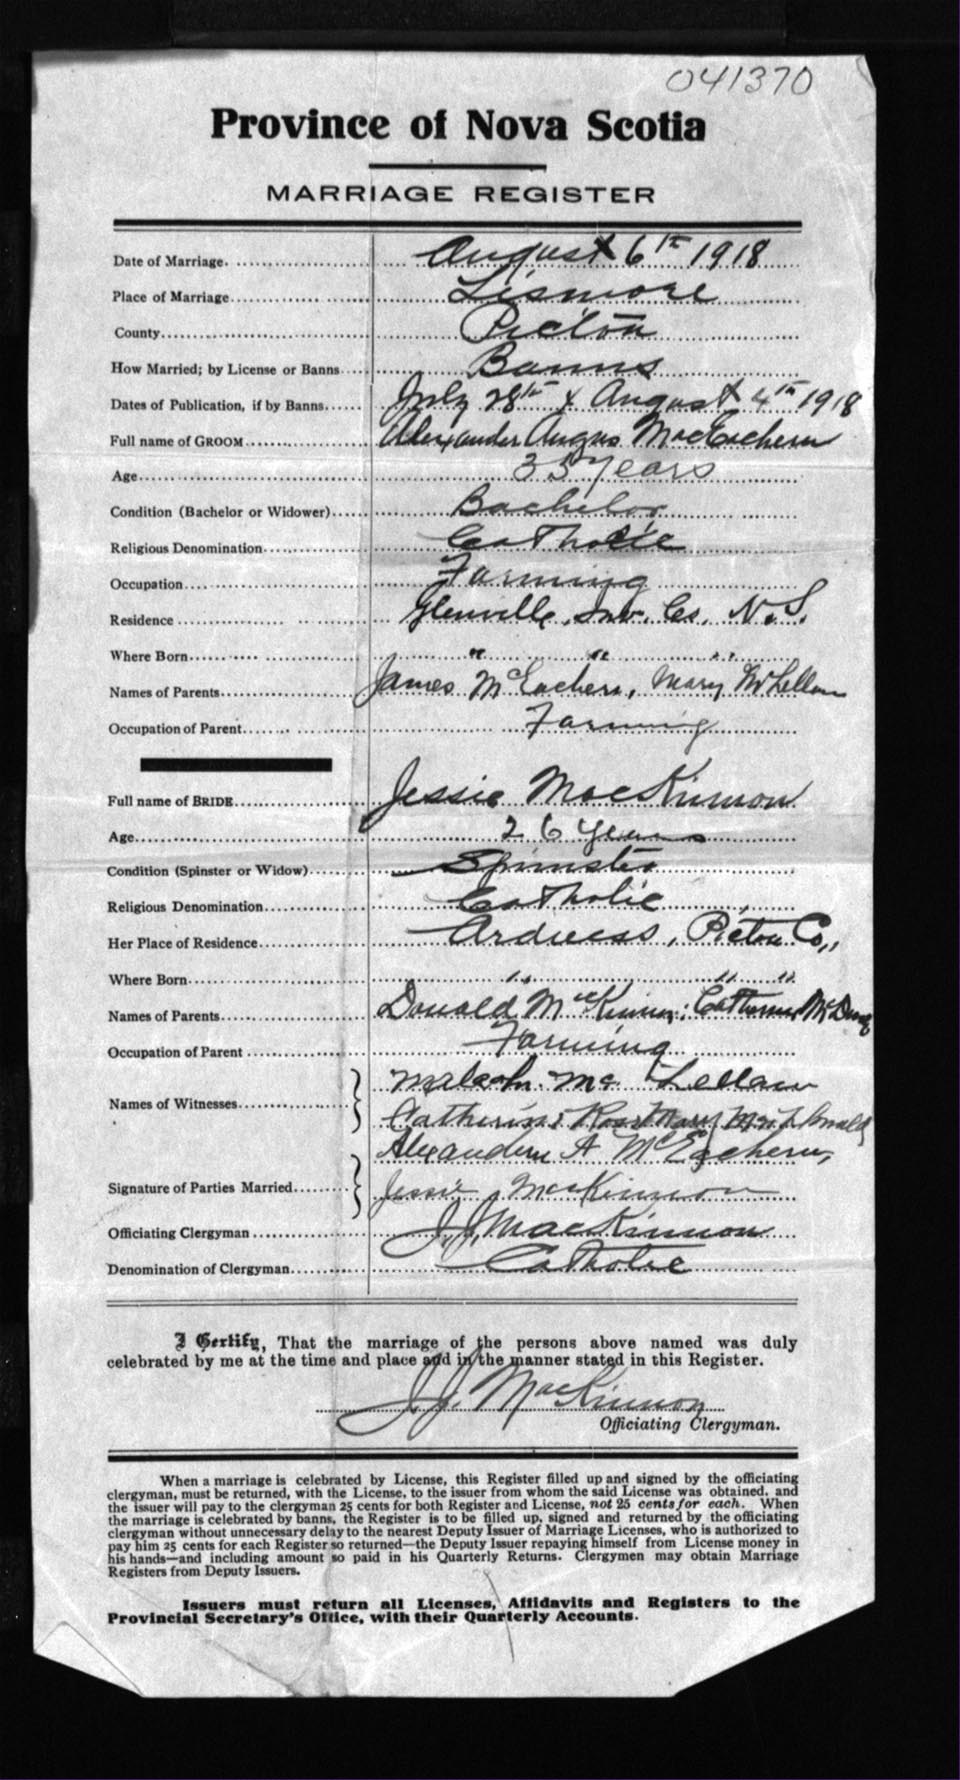 041370
Province of Nova Scotia
MARRIAGE REGISTER
Date of Marriage. August 6th 1918
Place of Marriage Lismore
County Pictou
How Married; by License or Banns Banns
Dates of Publication, if by Banns July 28th & August 4th 1918
Full name of GROOM Alexander Angus MacEachern
Age 35 years
Condition (Bachelor or Widower) Bachelor
Religious Denomination Catholic
Occupation Farming
Residence Glenville, Inv. Co. N.S.
Where Born " " "
Names of Parents James McEachern, Mary McLellan
Occupation of Parent Farming
Full name of BRIDE Jessie MacKinnon
Age 26 years
Condition (Spinster or Widow) Spinster
Religious Denomination Catholic
Her Place of Residence Ardness, Pictou Co,,
Where Born " " "
Names of Parents Donald MacKinnon; Catherine
Occupation of Parent Farming
Names of Witnesses Malcolm McLellan
Catherine Mary
Signature of Parties Married A McEachern,
Jessie MacKinnon
Officiating Clergyman J. J. MacKinnon
Denomination of Clergyman Catholic
I Certify, That the marriage of the persons above named was duly
celebrated by me at the time and place and in the manner stated in this Register.
J. J. MacKinnon
Officiating Clergyman.
When a marriage is celebrated by License, this Register filled up and signed by the officiating
clergyman, must be returned, with the License, to the issuer from whom the said License was obtained, and
the issuer will pay to the clergyman 25 cents for both Register and License, not 25 cents for each. When
the marriage is celebrated by banns, the Register is to be filled up, signed and returned by the officiating
clergyman without unnecessary delay to the nearest Deputy Issuer of Marriage Licenses, who is authorized to
pay him 25 cents for each Register so returned—the Deputy Issuer repaying himself from License money in
his hands—and including amount so paid in his Quarterly Returns. Clergymen may obtain Marriage
Registers from Deputy Issuers.
Issuers must return all Licenses, Affidavits and Registers to the
Provincial Secretary's Office, with their Quarterly Accounts.